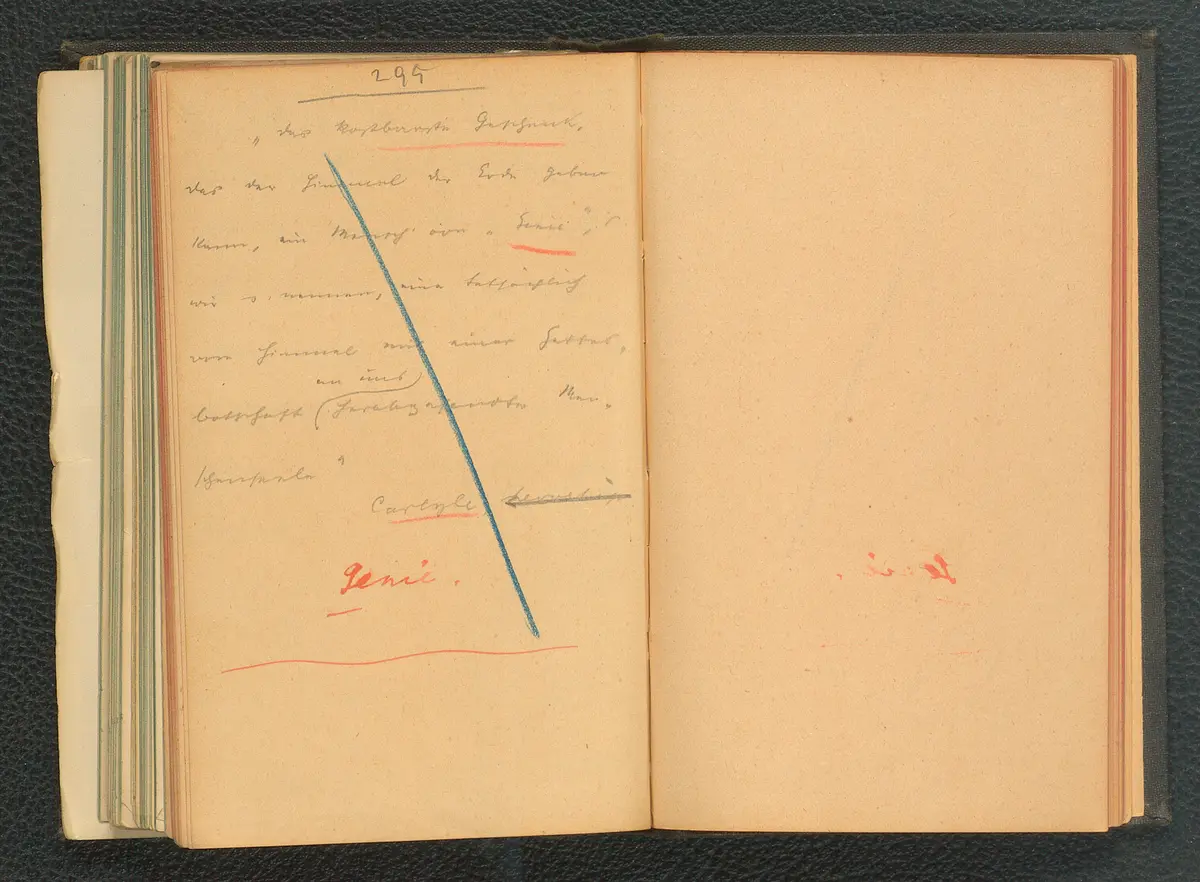 295
„das kostbarste Geschenk,
das der Himmel der Erde geben
kann, ein Mensch von „Genie“,
wie wir's nennen, eine tatsächlich
vom Himmel mit einer Gottes-
an uns
botschaft herabgesandte Men-
schenseele“
Carlyle
Genie.